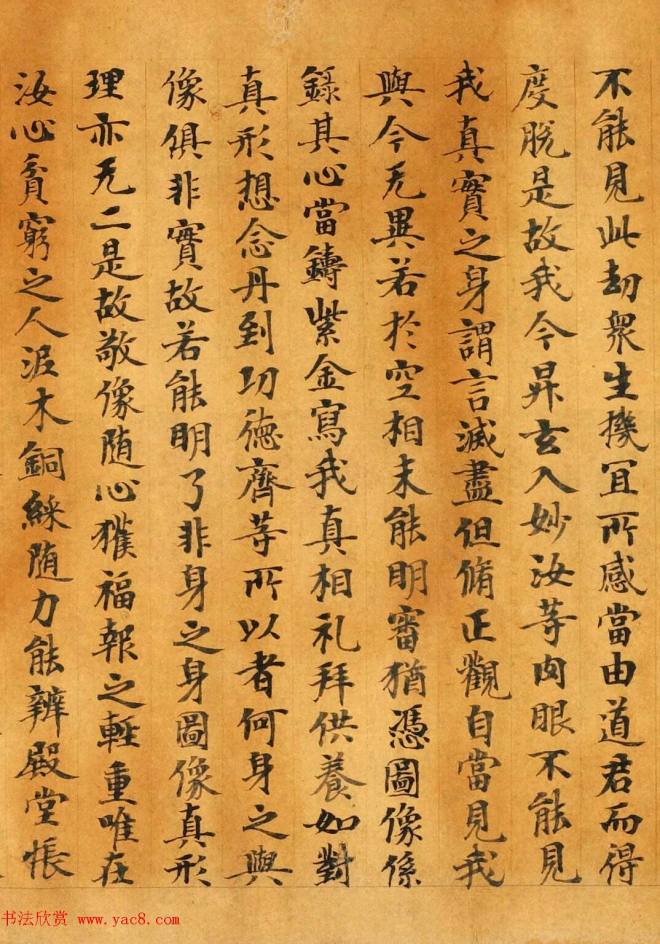 不能見此劫眾生機冝所感當由道君而得
度脫是故我今昇玄入妙汝等肉眼不能見
我真實之身謂言滅盡但脩正觀自當見我
與今无異若於空相未能明審猶憑圖像係
錄其心當鑄紫金寫我真相礼拜供養如對
真形想念丹到功德齊等所以者何身之與
像俱非實故若能明了非身之身圖像真形
理亦无二是故敬像随心獲福報之輕重唯在
汝心貧窮之人泥木銅綵随力能辨殿堂帳
书法欣赏 www.yac8.com